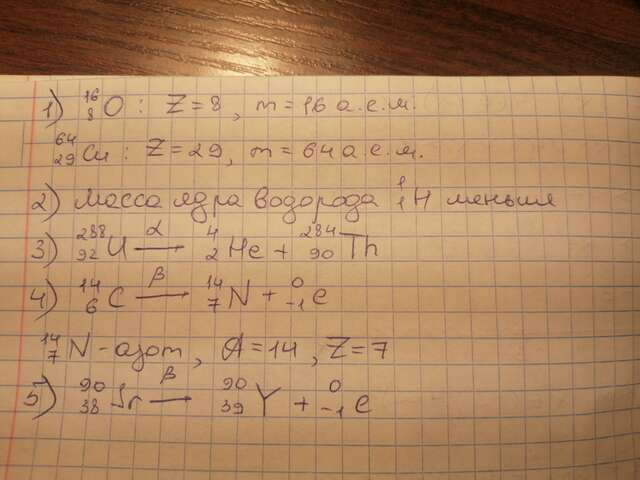 1) ¹⁶₈O : Z = 8, m = 16 а.е.м.
⁶⁴₂₉Cu : Z = 29, m = 64 а.е.м.
2) Масса ядра водорода ¹₁H меньше
3) ²³⁸₉₂U —α→ ⁴₂He + ²³⁴₉₀Th
4) ¹⁴₆C —β→ ¹⁴₇N + ⁰₋₁e
¹⁴₇N - азот, A = 14, Z = 7
5) ⁹⁰₃₈Sr —β→ ⁹⁰₃₉Y + ⁰₋₁e